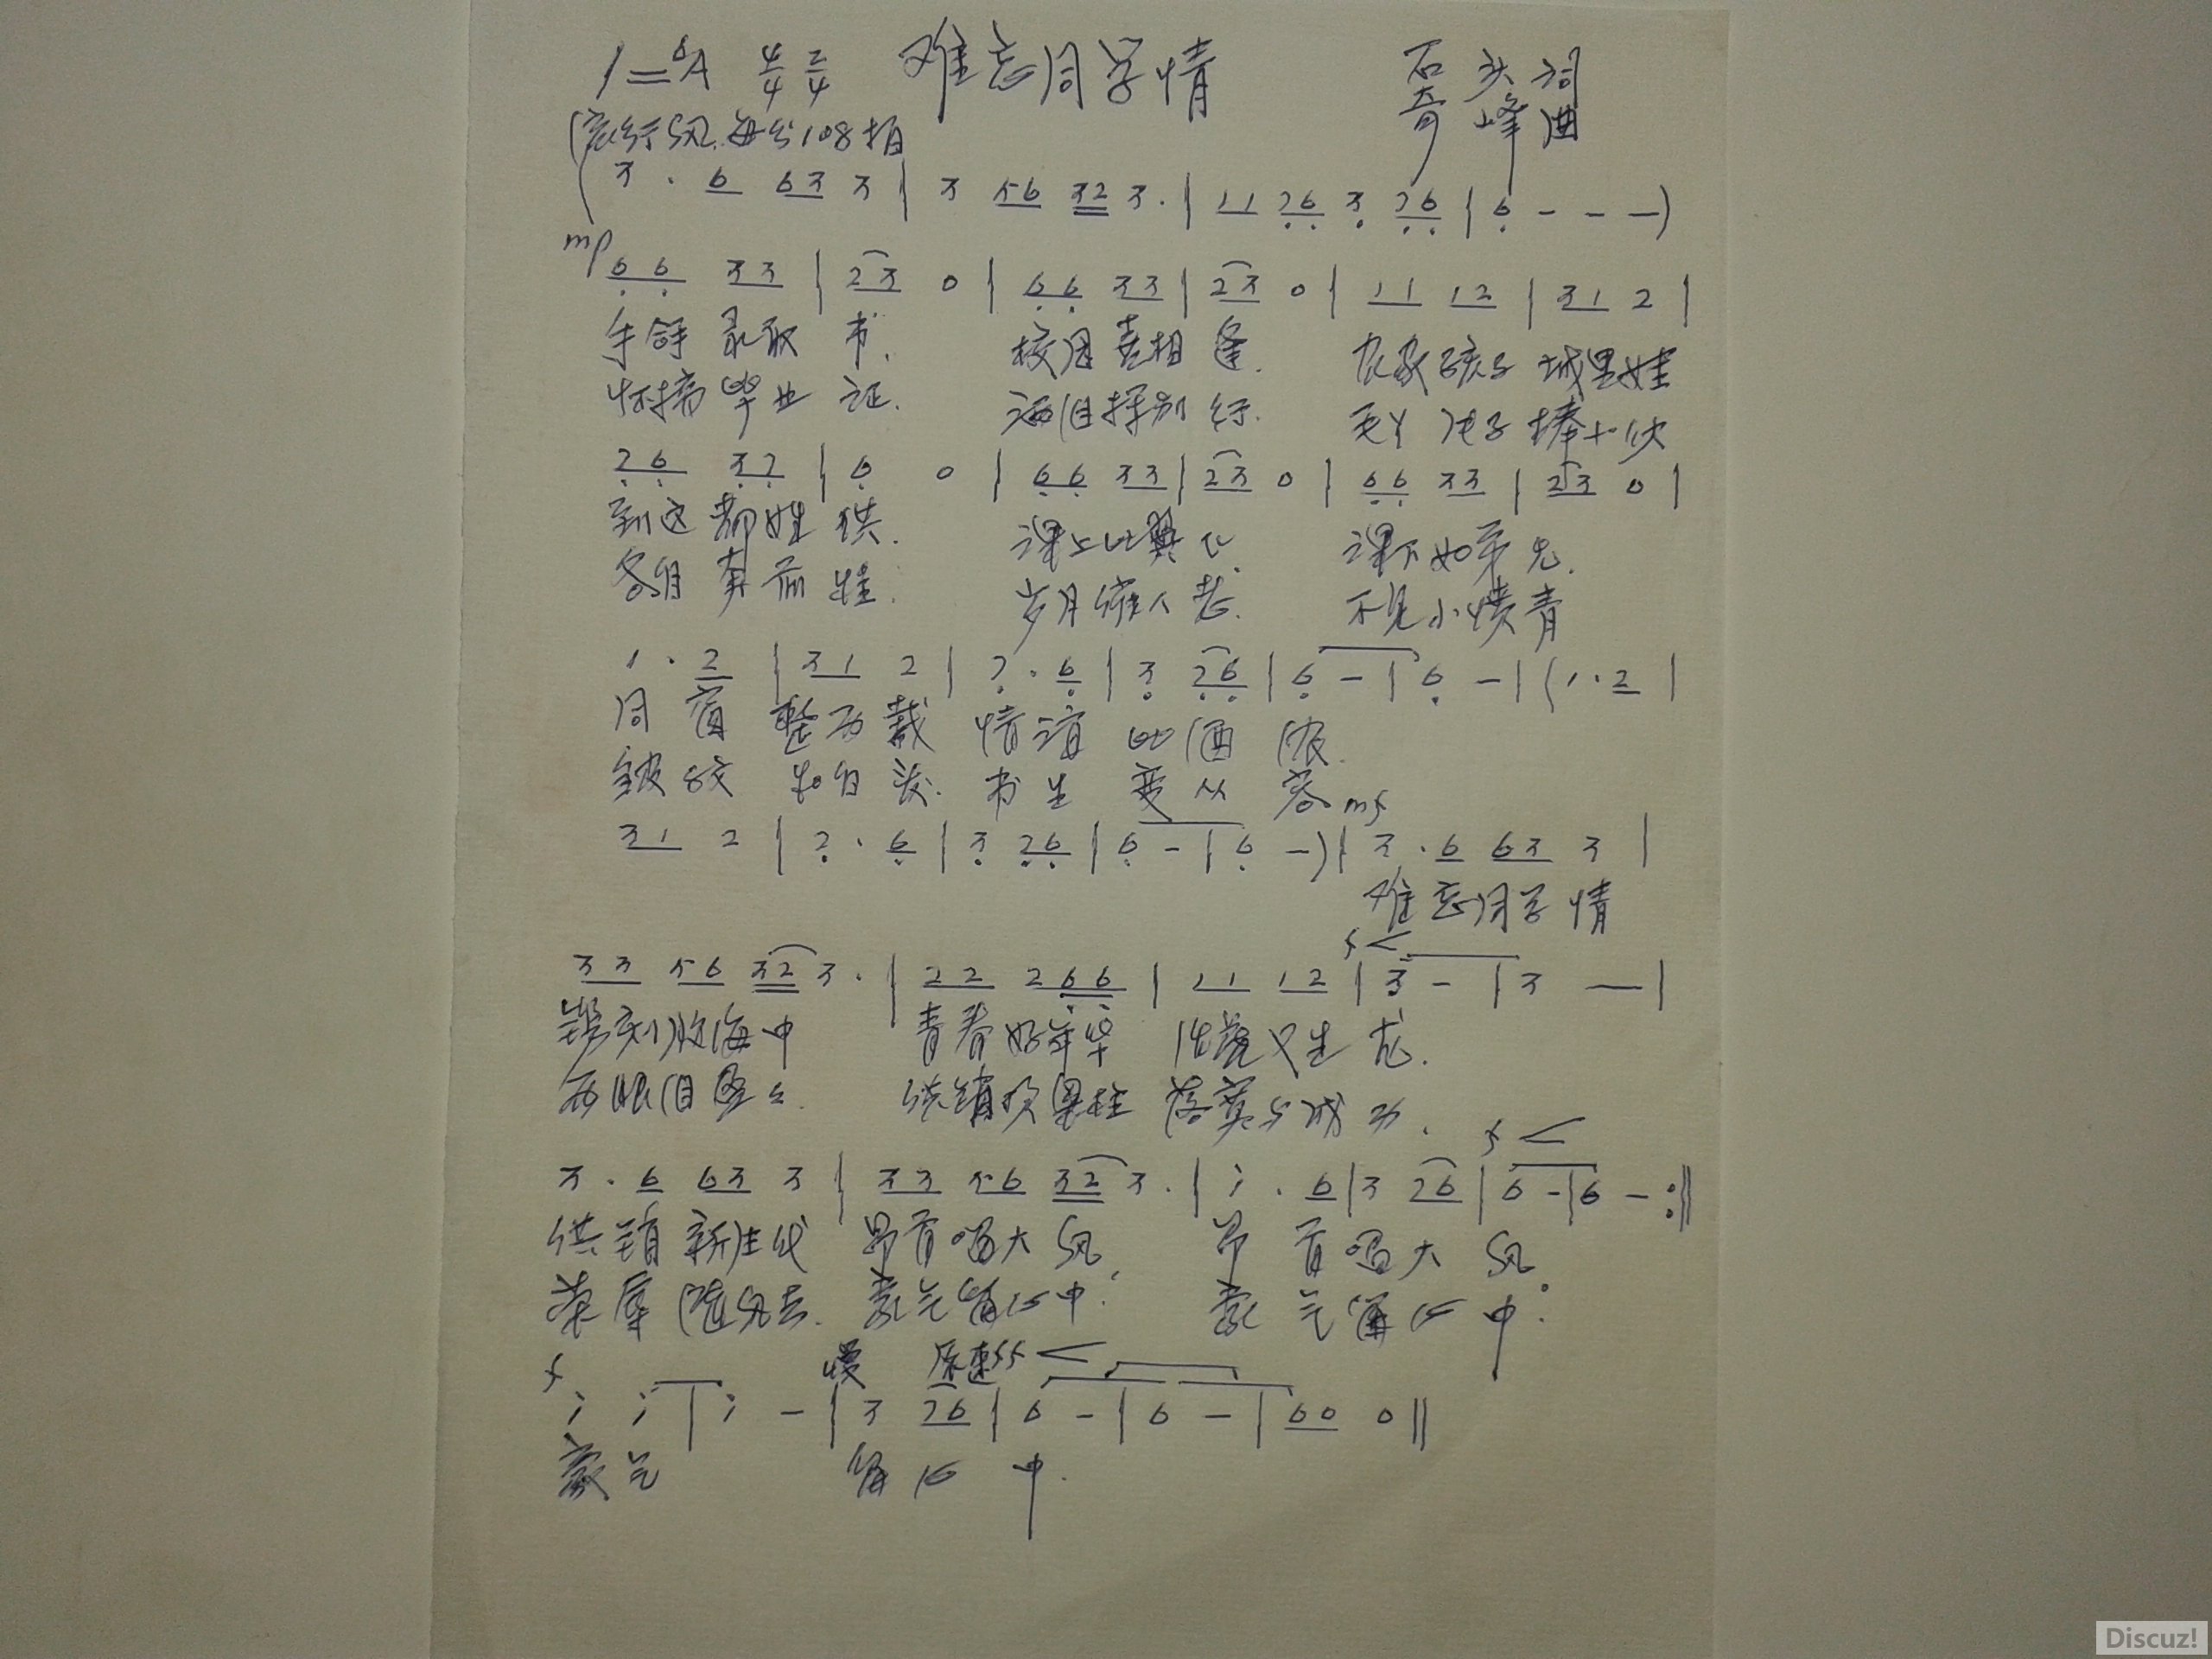 1=♭A 4/4 2/4 难忘同学情 石头词
奇峰曲
每分108拍
(3 · 6 63 3 | 3 56 32 3 · | 11 76 3 76 | 6 - - -)
mp
66 33 | 23 0 | 66 33 | 23 0 | 11 12 | 31 2 |
手拿录取书. 校园喜相逢. 农家孩子城里娃
怀揣毕业证. 洒泪挥别行.
76 37 | 6 0 | 66 33 | 23 0 | 66 33 | 23 0 |
到这都姓供. 课上比典忆. 课下如弟兄.
各自奔前 岁月催人老. 不见小愤青
1 · 2 | 31 2 | 7 · 6 | 3 76 | 6 - | 6 - | (1 · 2 |
同窗整两载 情谊如酒浓.
皱纹 白发. 书生变从容 mf
31 2 | 7 · 6 | 3 76 | 6 - | 6 -) | 3 · 6 63 3 |
难忘同学情
f <
33 56 32 3 · | 22 266 | 11 12 | 3 - | 3 - |
镌刻脑海中 青春好年华 生龙.
两眼泪 供销顶梁柱 落寞与成功.
f <
3 · 6 63 3 | 33 56 32 3 · | i · 6 | 3 76 | 6 - | 6 - :||
供销新生代 昂首唱大风. 昂首唱大风.
荣辱随风去. 豪气留心中. 豪气留心中.
f 慢 原速 ff <
i i | i - | 3 76 | 6 - | 6 - | 60 0 ||
豪气 留心中.
Discuz!